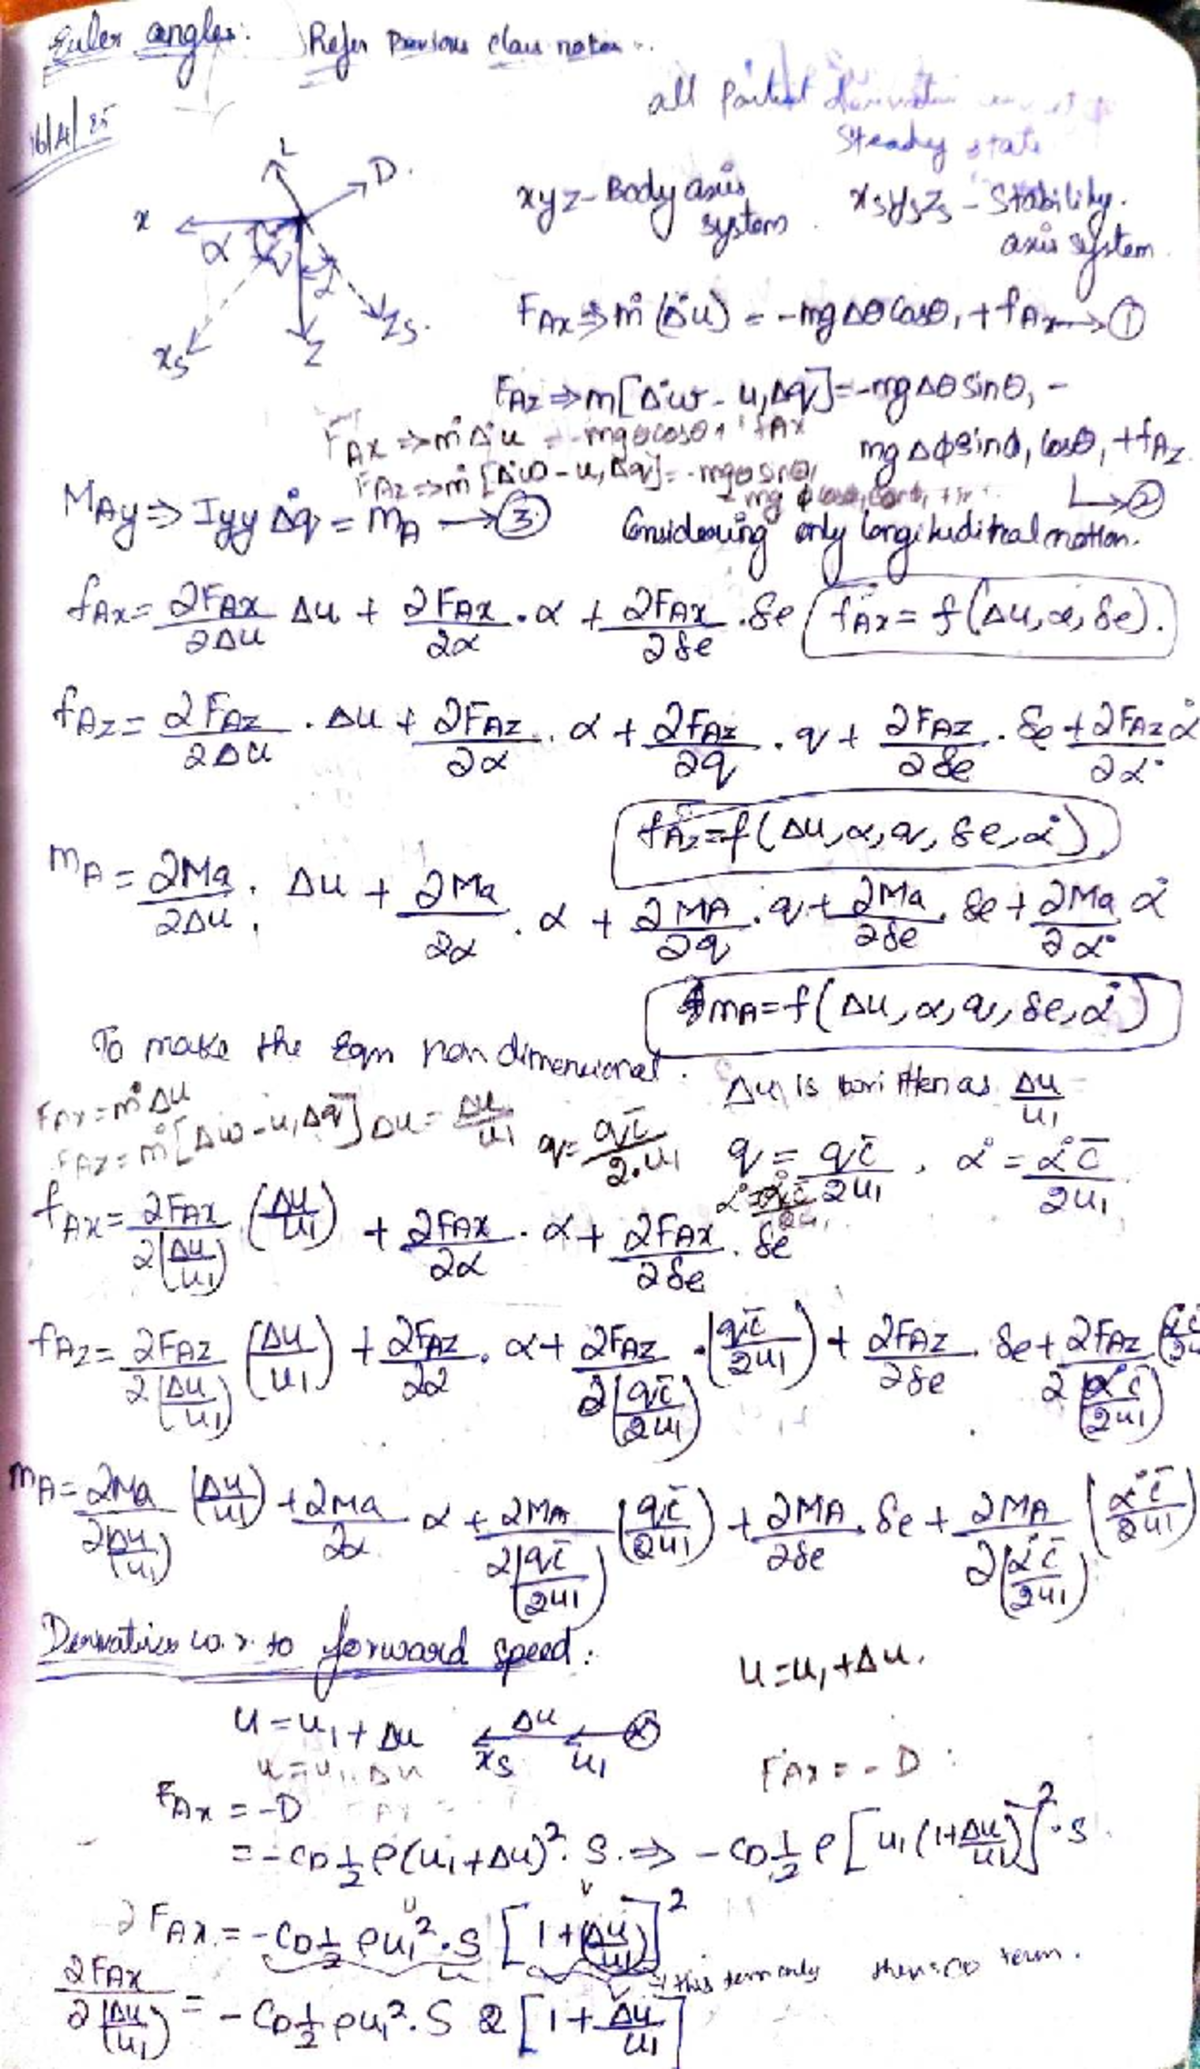 Euler angles: Refer Previous class notes.
16/4/25
all partial
Steady state
L
D
x
α
α
xs
z
zs.
xyz - Body axis system. xsyszs - Stability. axis system.
FAx ⇒ m(Δu̇) = -mgΔθcosθ₁ + fAx → ①
FAz ⇒ m[Δẇ - u₁Δq] = -mgΔθsinθ₁ -
mgΔϕsinϕ₁cosθ₁ + fAz
↳ ②
FAx ⇒ mΔu̇ = -mgθcosθ₁ + fAx
FAz ⇒ m[Δẇ - u₁Δq] = -mgθsinθ₁
MAy ⇒ IyyΔq̇ = mA → ③ Considering only longitudinal motion.
fAx = ∂FAx/∂Δu Δu + ∂FAx/∂α · α + ∂FAx/∂δe · δe fAx = f(Δu, α, δe).
fAz = ∂FAz/∂Δu · Δu + ∂FAz/∂α · α + ∂FAz/∂q · q + ∂FAz/∂δe · δe + ∂FAz/∂α̇ α̇
fAz = f(Δu, α, q, δe, α̇)
mA = ∂Ma/∂Δu · Δu + ∂Ma/∂α · α + ∂MA/∂q · q + ∂Ma/∂δe · δe + ∂Ma/∂α̇ α̇
mA = f(Δu, α, q, δe, α̇)
To make the Eqn non dimensional. Δu is written as Δu/u₁
FAx = mΔu̇
FAz = m[Δẇ - u₁Δq] Δu = Δu/u₁ q = qc̄/2·u₁ q = qc̄/2u₁, α̇ = α̇c̄/2u₁
fAx = ∂FAx/∂(Δu/u₁) (Δu/u₁) + ∂FAx/∂α · α + ∂FAx/∂δe · δe
fAz = ∂FAz/∂(Δu/u₁) (Δu/u₁) + ∂FAz/∂α · α + ∂FAz/∂(qc̄/2u₁) · (qc̄/2u₁) + ∂FAz/∂δe · δe + ∂FAz/∂(α̇c̄/2u₁) (α̇c̄/2u₁)
mA = ∂Ma/∂(Δu/u₁) (Δu/u₁) + ∂Ma/∂α α + ∂MA/∂(qc̄/2u₁) (qc̄/2u₁) + ∂MA/∂δe · δe + ∂MA/∂(α̇c̄/2u₁) (α̇c̄/2u₁)
Derivatives w.r.to forward speed: u = u₁ + Δu.
u = u₁ + Δu
Δu
xs u₁
FAx = -D FAx = -D
= -CD ½ ρ(u₁ + Δu)² · S. ⇒ -CD ½ ρ[u₁(1 + Δu/u₁)]² · S
∂FAx = -CD ½ ρu₁² · S [1 + (Δu/u₁)]²
this term only
term.
∂FAx/∂(Δu/u₁) = -CD ½ ρu₁² · S 2[1 + Δu/u₁]